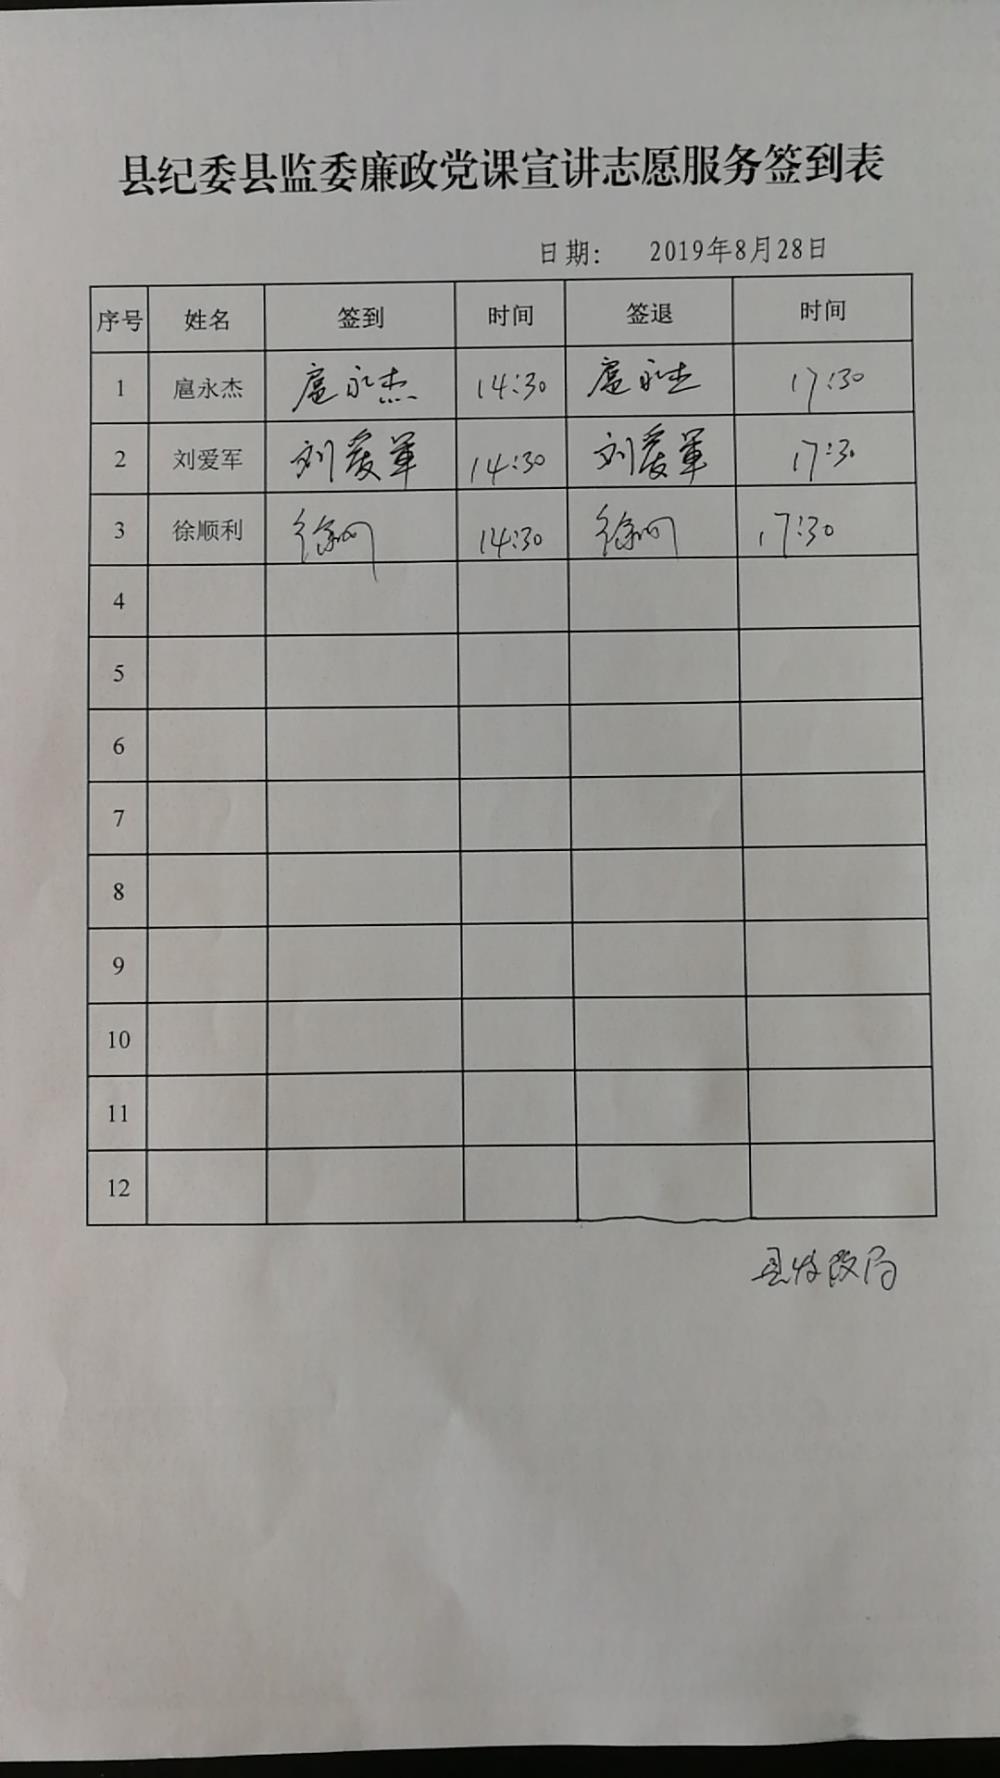 县纪委县监委廉政党课宣讲志愿服务签到表
日期： 2019年8月28日
序号 姓名 签到 时间 签退 时间
1 扈永杰 扈永杰 14:30 扈永杰 17:30
2 刘爱军 刘爱军 14:30 刘爱军 17:30
3 徐顺利 徐 14:30 徐 17:30
4
5
6
7
8
9
10
11
12
县发改局